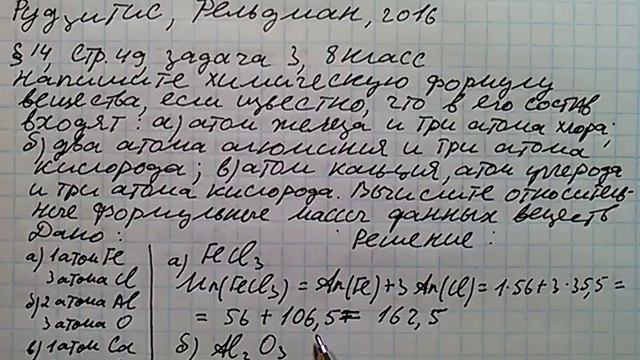 Рудзитис, Фельдман, 2016
§14, стр. 49 задача 3, 8 класс
Напишите химическую формулу
вещества, если известно, что в его состав
входят: а) атом железа и три атома хлора;
б) два атома алюминия и три атома
кислорода; в) атом кальция, атом углерода
и три атома кислорода. Вычислите относитель-
ные формульные массы данных веществ
Дано: Решение:
а) 1 атом Fe
3 атома Cl
б) 2 атома Al
3 атома O
в) 1 атом Ca
а) FeCl₃
Mr(FeCl₃) = Ar(Fe) + 3 Ar(Cl) = 1·56 + 3·35,5 =
= 56 + 106,5 = 162,5
б) Al₂O₃